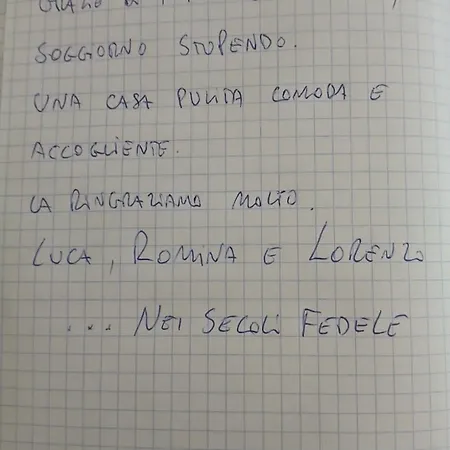 SOGGIORNO STUPENDO.
UNA CASA PULITA COMODA E
ACCOGLIENTE.
LA RINGRAZIAMO MOLTO.
LUCA, ROMINA E LORENZO
... NEI SECOLI FEDELE